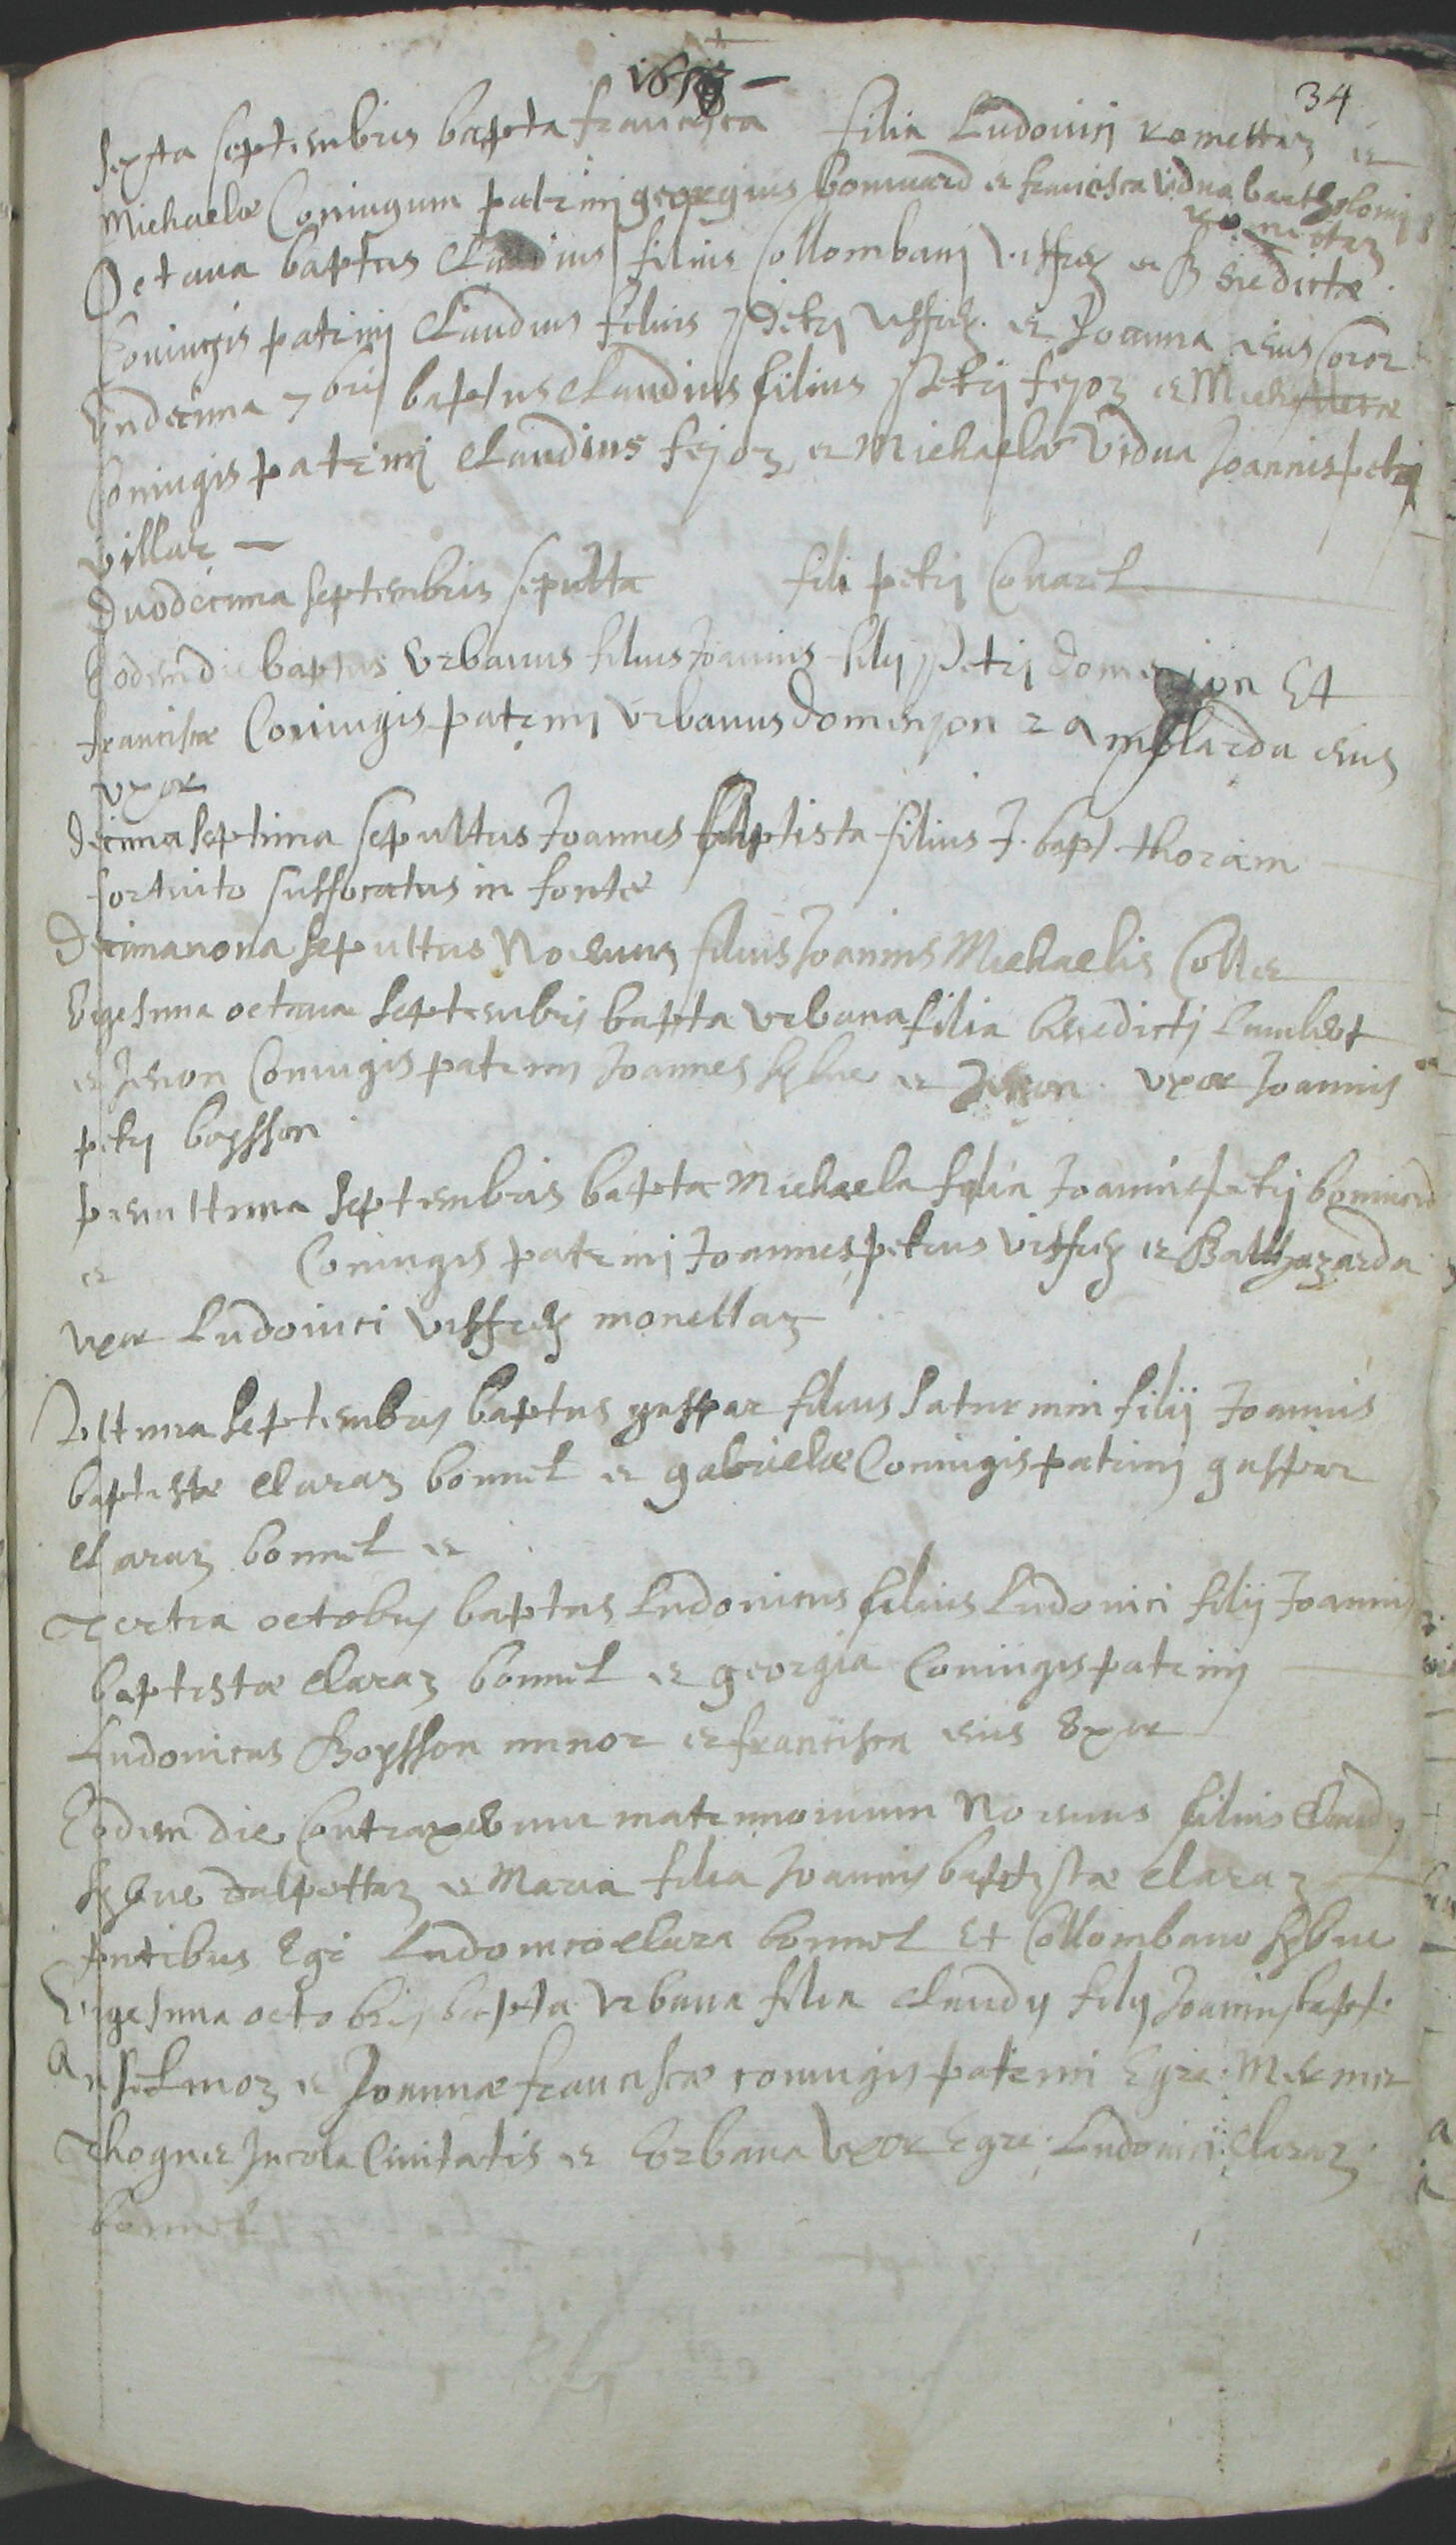 34
Sexta septembris bapta francisca filia Ludovici romettaz et
Michaelæ Coniugum patrinj georgius bonnard et francisca vidua bartholomej
romettaz
Octaua baptus Claudius filius Collombanj viffrey et Benedictæ
Coniugis patrinj Claudius filius Petrj viffrey et Joanna eius soror
Vndecima 7bris baptus Claudius filius Petrj fejoz et Michaelæ
Coniugis patrinj Claudius fejoz et Michaela Vidua Joannis petrj
villar
Duodecima septembris sepulta fili petrj Covarel
Eodem die baptus Vrbanus filius Joannis filij Petrj domenjon Et
franciscæ Coniugis patrinj Vrbanus domenjon et amblarda eius
vxor
Decima septima sepultus Joannes baptista filius J. bapt. thoriam
fortuito suffocatus in fonte
Decimanona sepultus Noeuus filius Joannis Michaelis Collet
Vigesima octaua septembris bapta vrbana filia benedictj
et Jenon Coniugis patrinj Joannes et Jenon vxor Joannis
petrj boysson
penultima septembris bapta Michaela filia Joannis petrj bonnard
et Coniugis patrinj Joannes petrus viffrey et Balthazarda
vxor Ludovici viffrey monettaz
Vltima septembris baptus gaspar filius Saturnini filij Joannis
baptistæ Claraz bonnel et gabrielæ Coniugis patrinj gaspar
claraz bonnel et
Tertia octobris baptus Ludovicus filius Ludovici filij Joannis
baptistæ claraz bonnel et georgia Coniugis patrinj
Ludovicus Boysson minor et francisca eius Vxor
Eodem die Contraxerunt matrimonium Noeuus filius Claudij
dalpettaz et Maria filia Joannis baptistæ claraz
pntibus Egr Ludovico clara bonnel Et Collombano
Vigesima octobris bapta Vrbana filia claudij filij Joannis bapt.
anselmoz et Joannæ franciscæ coniugis patrini Egre.
thognet Incola Ciuitatis et Vrbana Vxor Egre. Ludovici claraz
bonnel